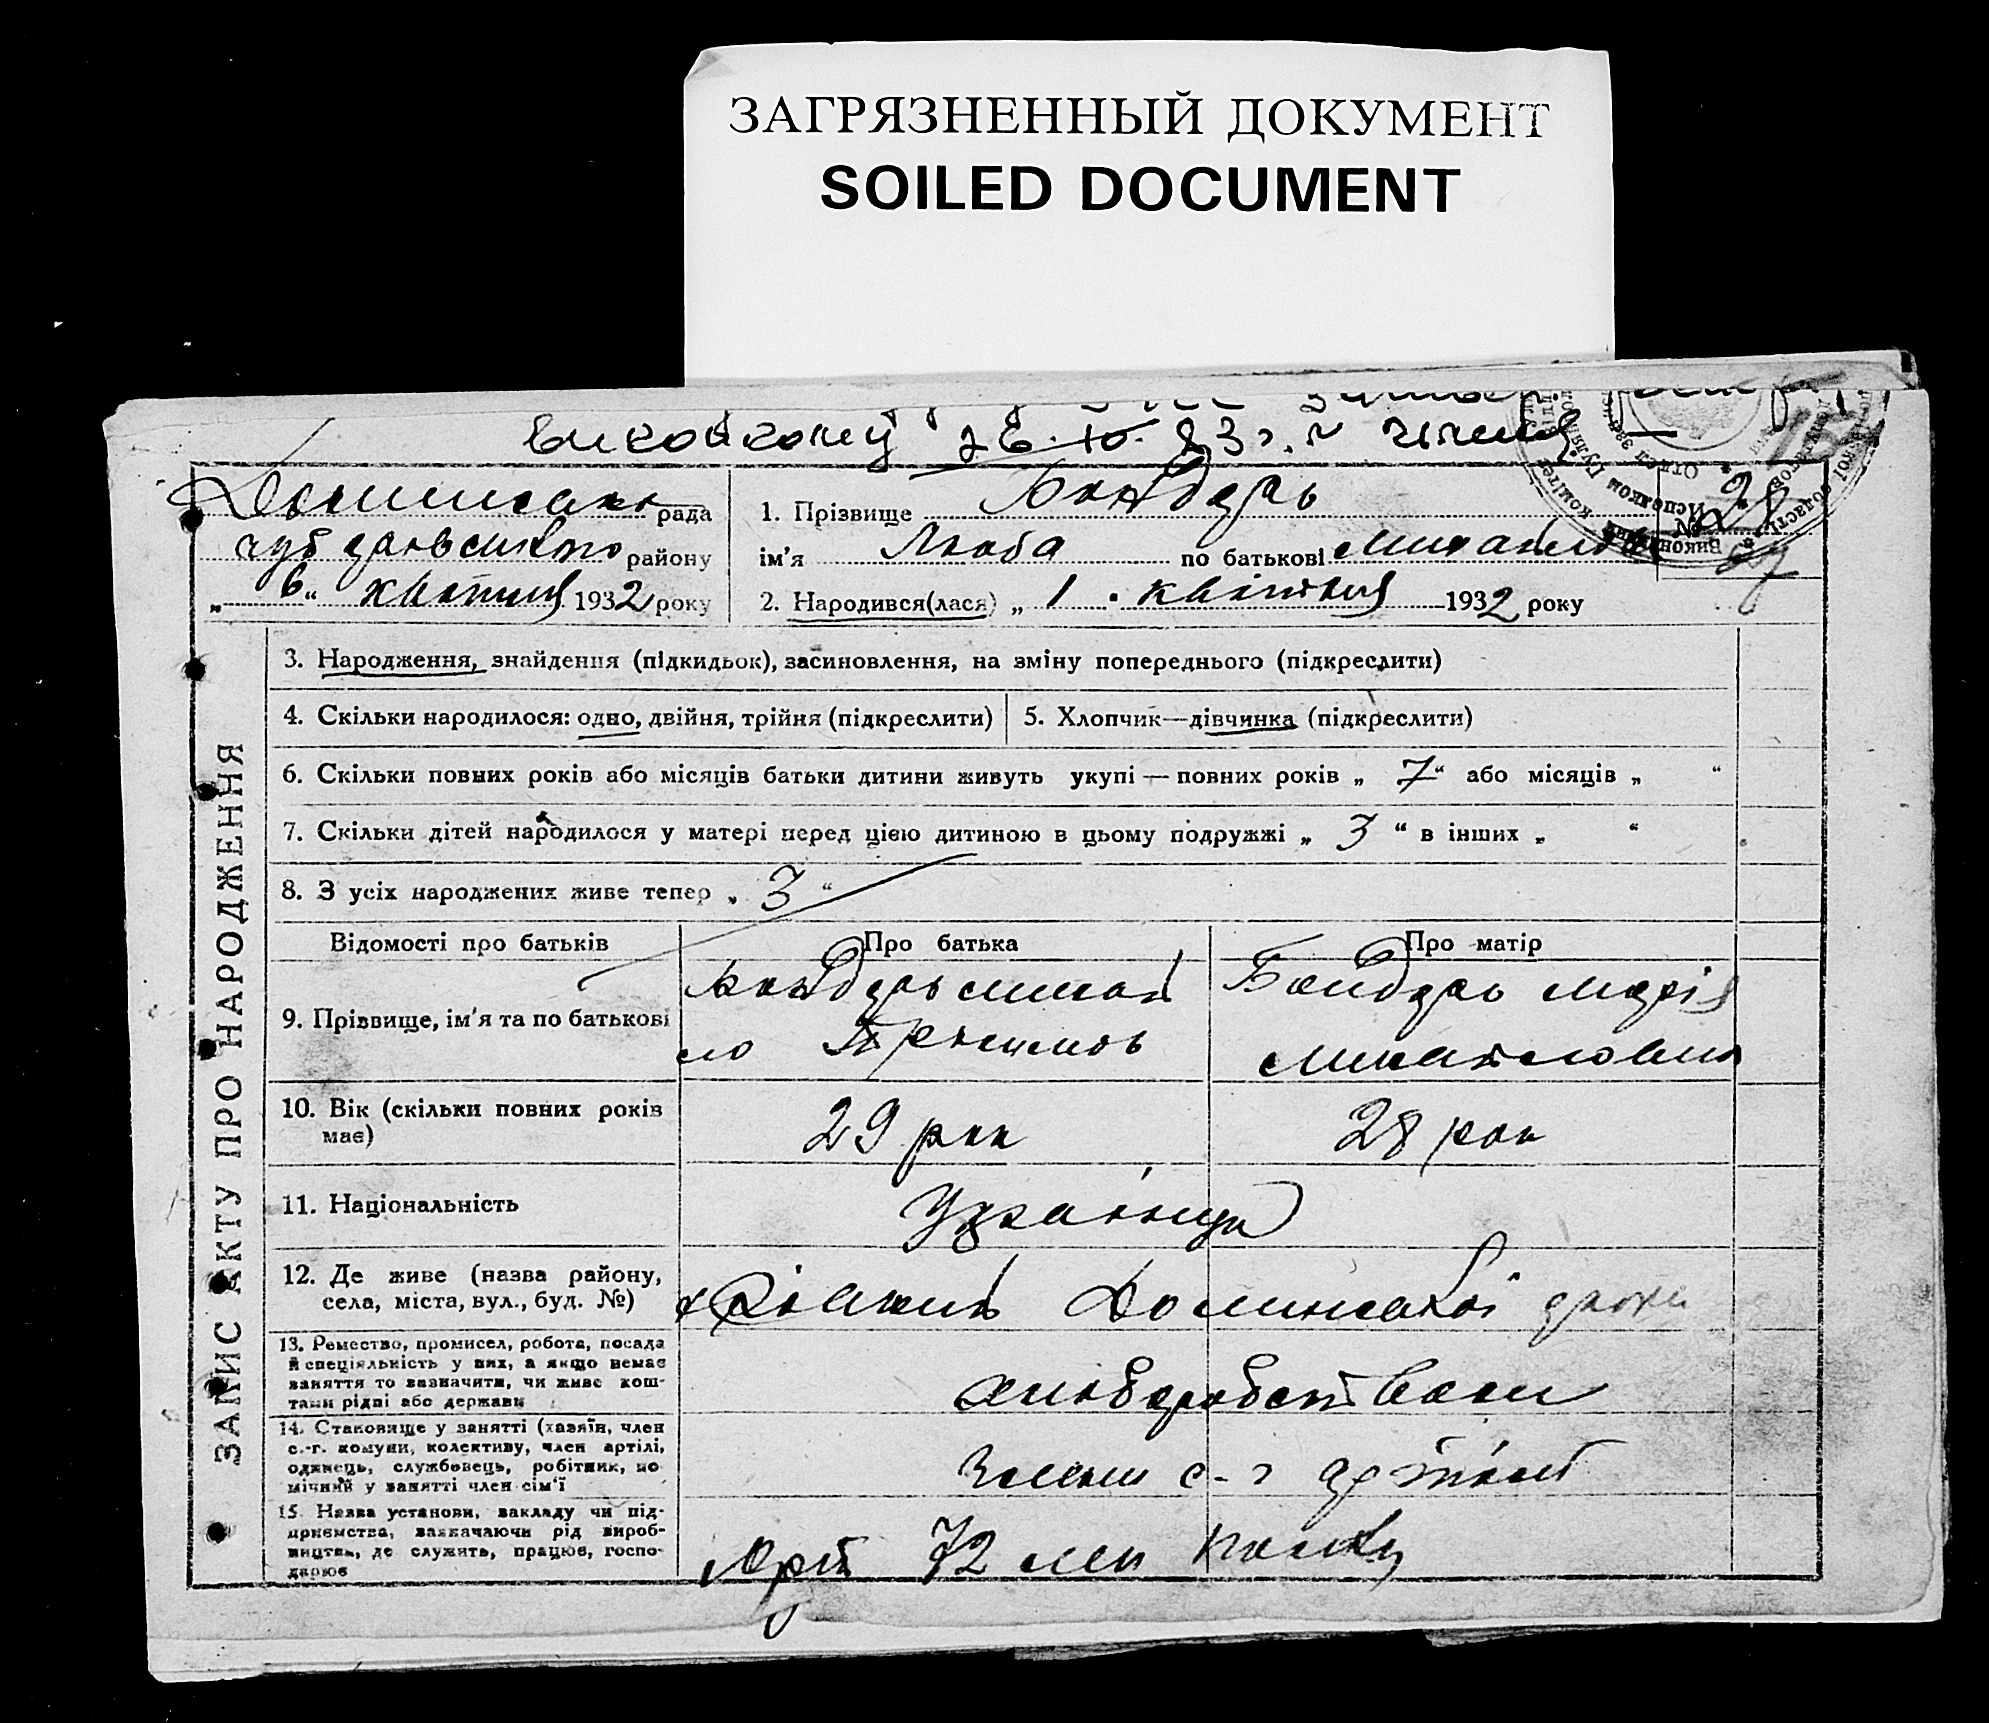 ЗАГРЯЗНЕННЫЙ ДОКУМЕНТ
SOILED DOCUMENT
рада
району
„ 6 “ квітня 1932 року
1. Прізвище Бондарь
№ 28
ім'я Люба по батькові Михайлов
2. Народився(лася) „ 1 квітня 1932 року
ЗАПИС АКТУ ПРО НАРОДЖЕННЯ
3. Народження, знайдення (підкидьок), засиновлення, на зміну попереднього (підкреслити)
4. Скільки народилося: одно, двійня, трійня (підкреслити)
5. Хлопчик—дівчинка (підкреслити)
6. Скільки повних років або місяців батьки дитини живуть укупі — повних років „ 7 “ або місяців „ “
7. Скільки дітей народилося у матері перед цією дитиною в цьому подружжі „ 3 “ в інших „ “
8. З усіх народжених живе тепер „ 3 “
Відомості про батьків
Про батька
Про матір
9. Прізвище, ім'я та по батькові
Бондарь Михай
ло
Бондарь Марія
Михайловна
10. Вік (скільки повних років
має)
29 рок
28 рок
11. Національність
Українці
12. Де живе (назва району,
села, міста, вул., буд. №)
Долинської
13. Ремество, промисел, робота, посада
й спеціяльність у них, а якщо немає
заняття то зазначити, чи живе кош-
тами рідні або держави
хліборобством
14. Становище у занятті (хазяїн, член
с.-г. комуни, колективу, член артілі,
одинець, службовець, робітник, по
мічний у занятті член сім'ї
члени с-г артілі
15. Назва установи, закладу чи під-
приємства, зазначаючи рід вироб-
ництва, де служить, працює, госпо-
дарює
Арт 72